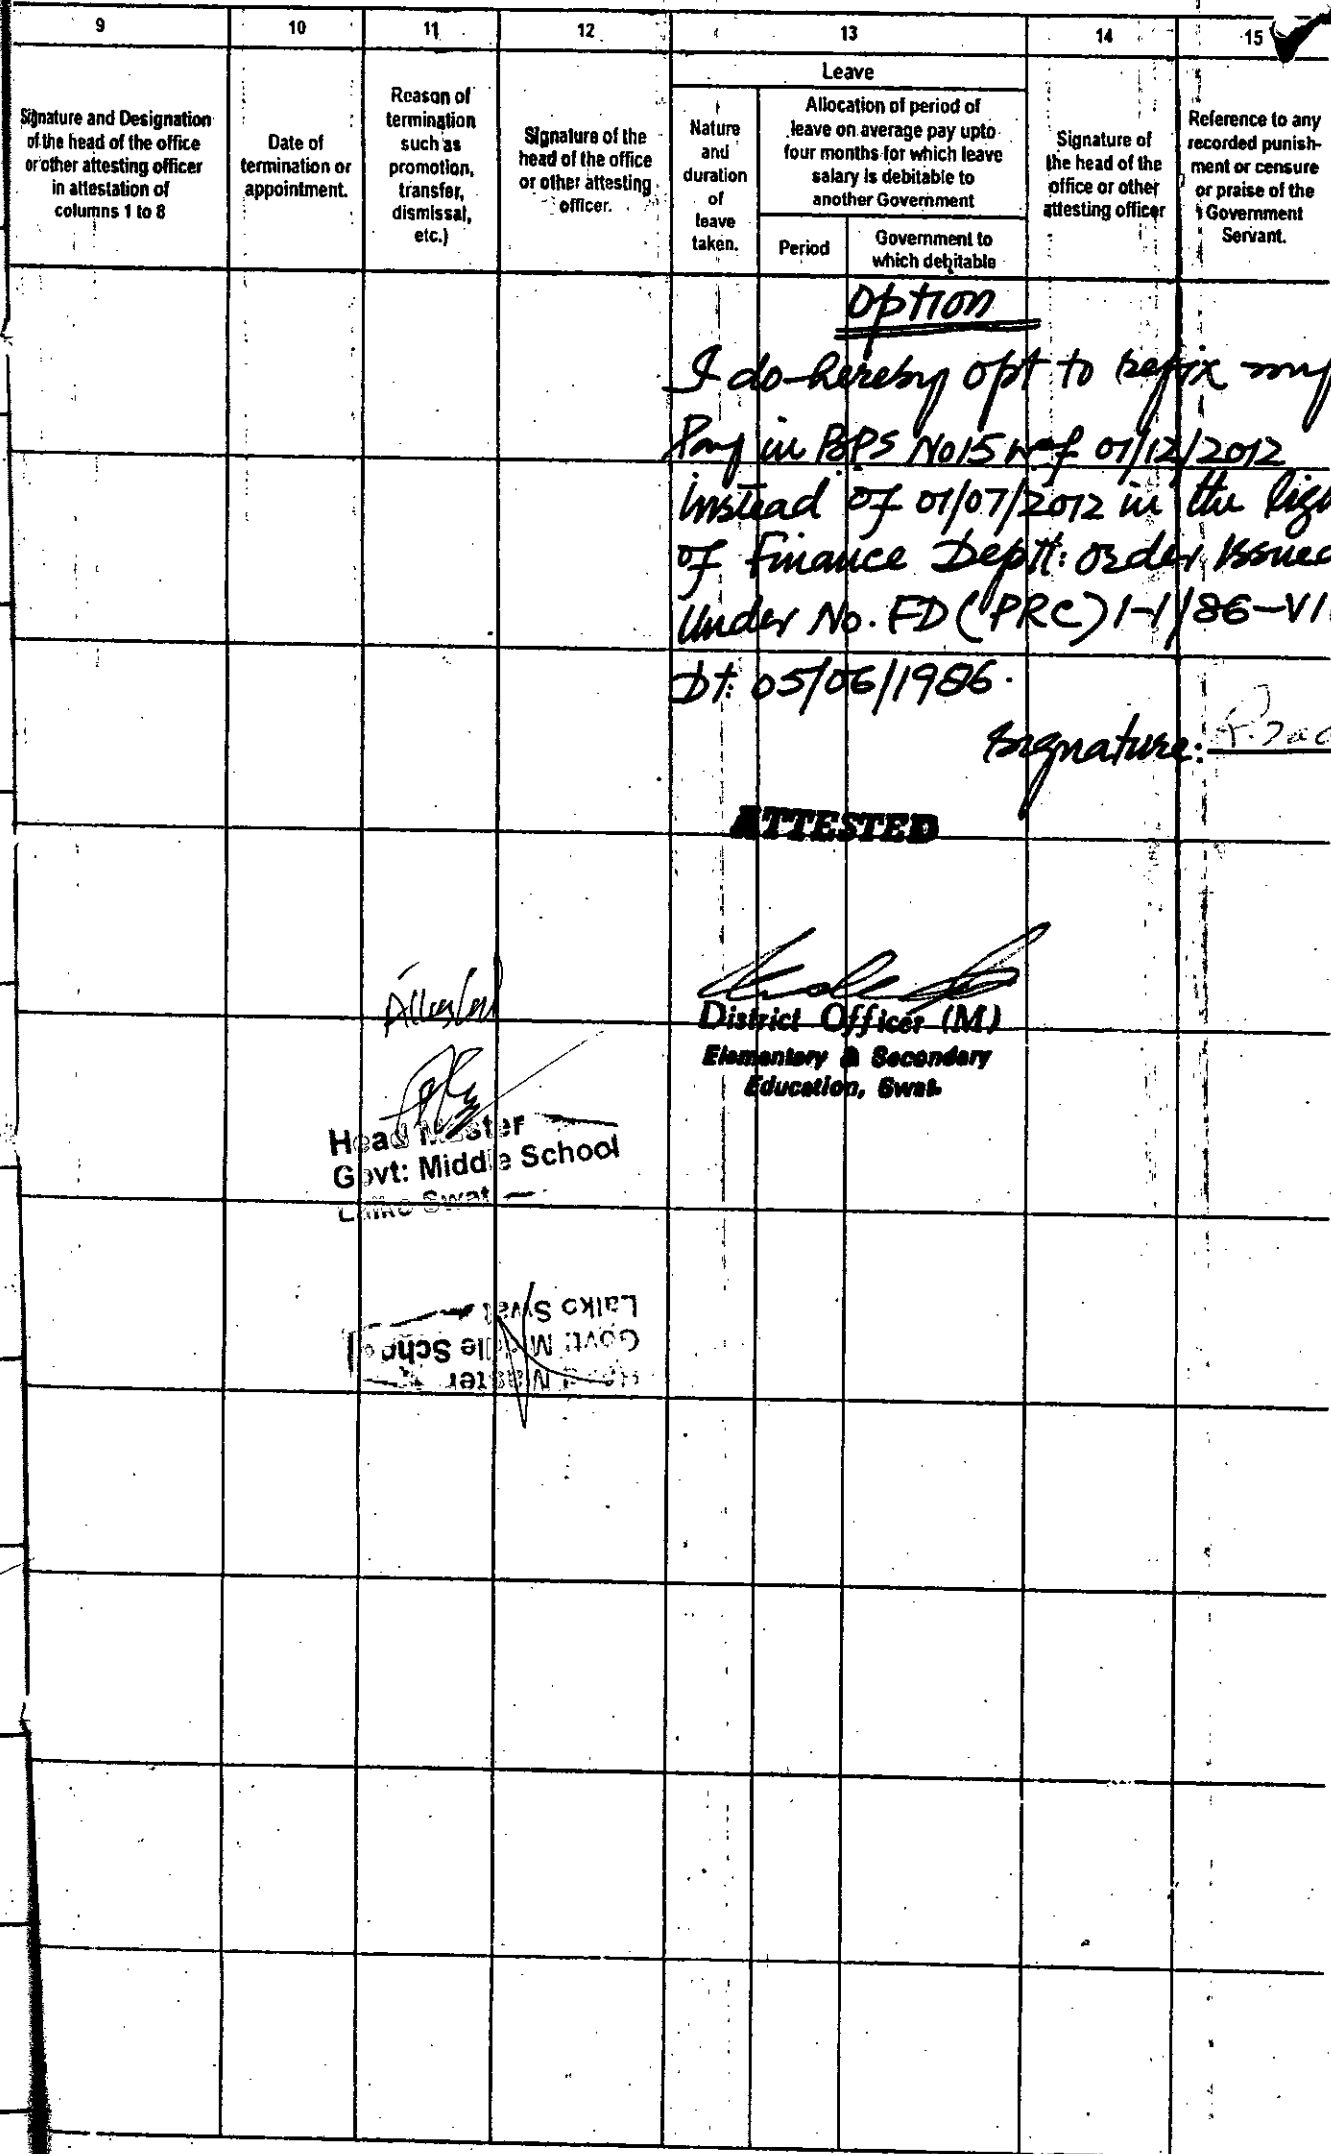 9 10 11 12 13 14 15
Signature and Designation
of the head of the office
or other attesting officer
in attestation of
columns 1 to 8
Date of
termination or
appointment.
Reason of
termination
such as
promotion,
transfer,
dismissal,
etc.)
Signature of the
head of the office
or other attesting
officer.
Leave
Nature
and
duration
of
leave
taken.
Allocation of period of
leave on average pay upto
four months for which leave
salary is debitable to
another Government
Period
Government to
which debitable
Signature of
the head of the
office or other
attesting officer
Reference to any
recorded punish-
ment or censure
or praise of the
Government
Servant.
Option
I do hereby opt to refix my
Pay in BPS No 15 wef 01/12/2012
instead of 01/07/2012 in the lig
of Finance Deptt: order issued
Under No. FD (PRC) 1-1/86-VI
Dt: 05/06/1986.
Signature:
ATTESTED
District Officer (M)
Elementary & Secondary
Education, Swat.
Attested
Head Master
Govt: Middle School
Laiko Swat
Head Master
Govt: Middle School
Laiko Swat